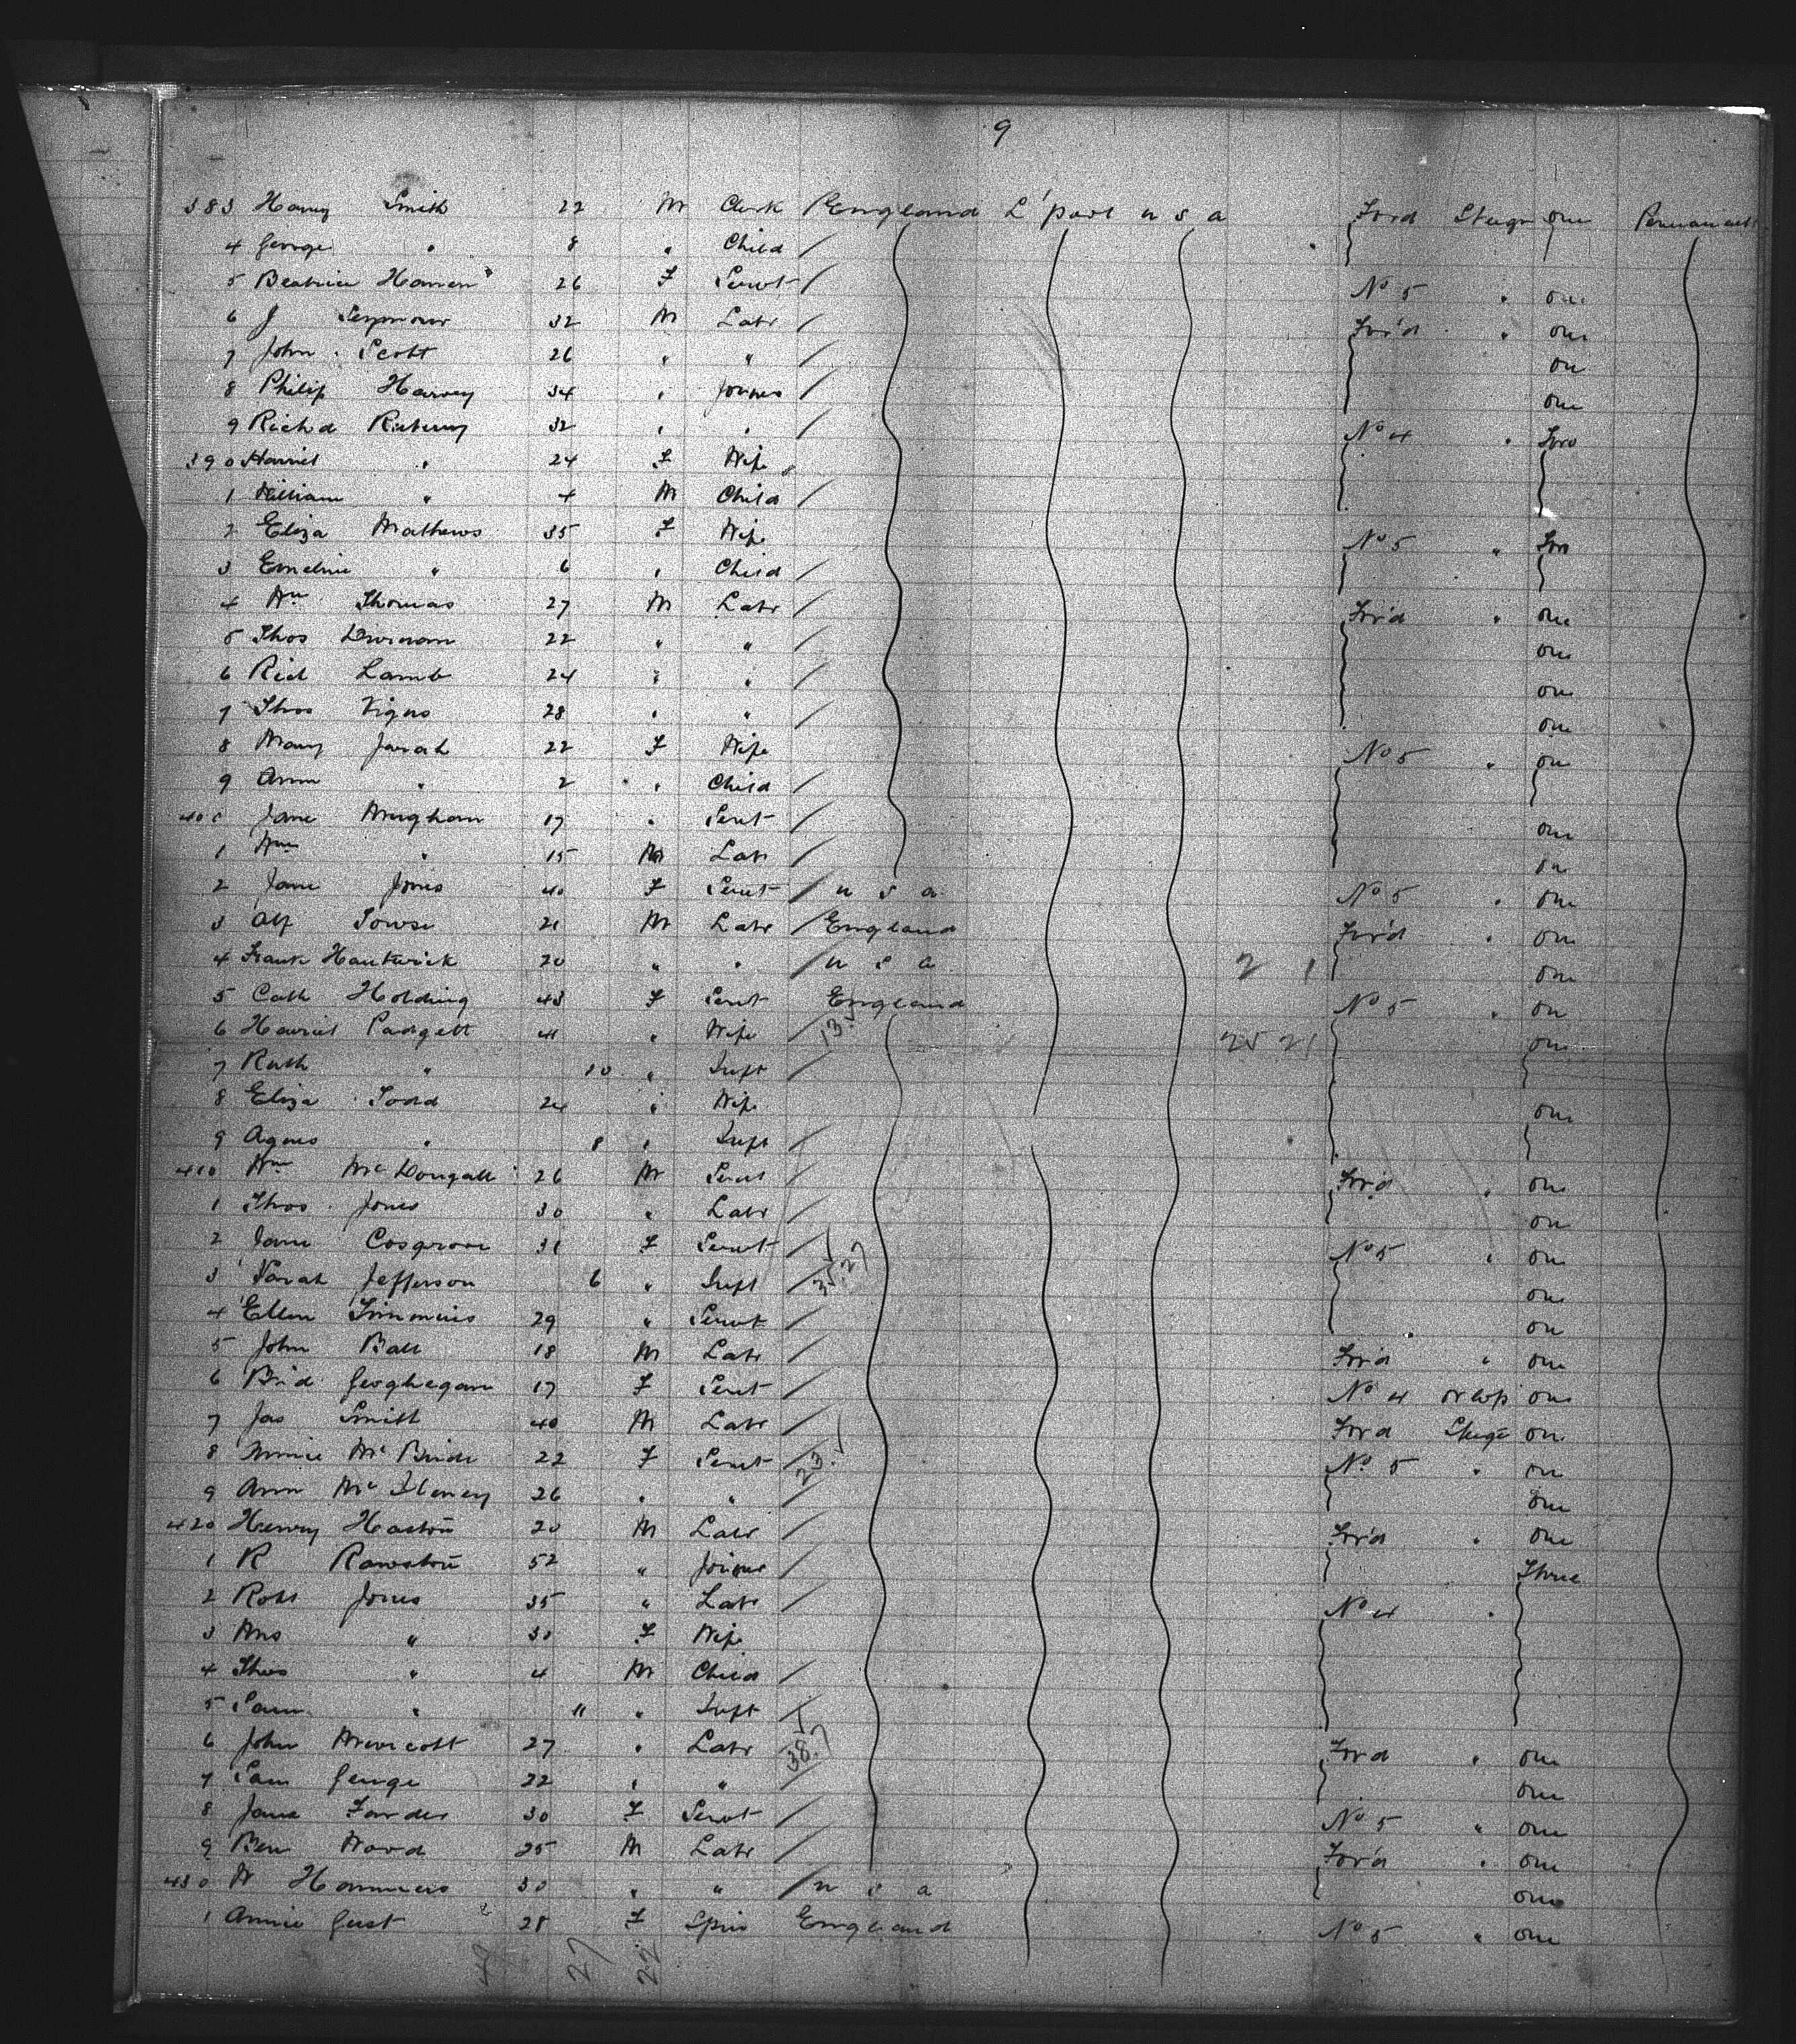 9
383 Harry Smith 22 M Clerk England L'pool U S A For'd Steege one Permanent
4 George " 8 " Child
5 Beatrice 26 F Servt No 5 " one
6 J Seymour 32 M Labr For'd " one
7 John Scott 26 " " one
8 Philip Harvey 34 " Joiner one
9 Richd 32 " " No 4 " Two
390 Harriet " 24 F Wife
1 William " 4 M Child
2 Eliza Mathews 35 F Wife No 5 " Two
3 Emeline " 6 " Child
4 Wm Thomas 27 M Labr For'd " one
5 Thos 22 " " one
6 Rich Lamb 24 " " one
7 Thos 28 " " one
8 Mary Jarah 22 F Wife No 5 " one
9 Ann " 2 " Child
400 Jane 17 " Servt one
1 Wm " 15 M Labr one
2 Jane Jones 40 F Servt U S A No 5 " one
3 Alf Towse 21 M Labr England For'd " one
4 Frank 20 " " U S A 2 1 one
5 Cath Holding 43 F Servt England No 5 " one
6 Harriet Padgett 41 " Wife 13 25 21 one
7 Ruth " 10 " Inft
8 Eliza Todd 24 " Wife one
9 Agnes " 8 " Inft
410 Wm McDougall 26 M Servt For'd " one
1 Thos Jones 30 " Labr one
2 Jane Cosgrove 31 F Servt No 5 " one
3 Sarah Jefferson 6 " Inft 35.27 one
4 Ellen Timmins 29 " Servt one
5 John Ball 18 M Labr For'd " one
6 Brid Geoghegan 17 F Servt No 4 one
7 Jas Smith 40 M Labr For'd Steege one
8 Annie McBride 22 F Servt 23 No 5 " one
9 Ann 26 " " one
420 Henry 20 M Labr For'd " one
1 R 52 " Joiner Three
2 Robt Jones 35 " Labr No 4 "
3 Mrs " 30 F Wife
4 Thos " 4 M Child
5 Sam " 11 " Inft
6 John 27 " Labr 38.7 For'd " one
7 Sam 22 " " one
8 Jane 30 F Servt No 5 " one
9 Ben Wood 25 M Labr For'd " one
430 W 30 " " U S A one
1 Annie Gust 28 F Spin England No 5 " one
49 27 22